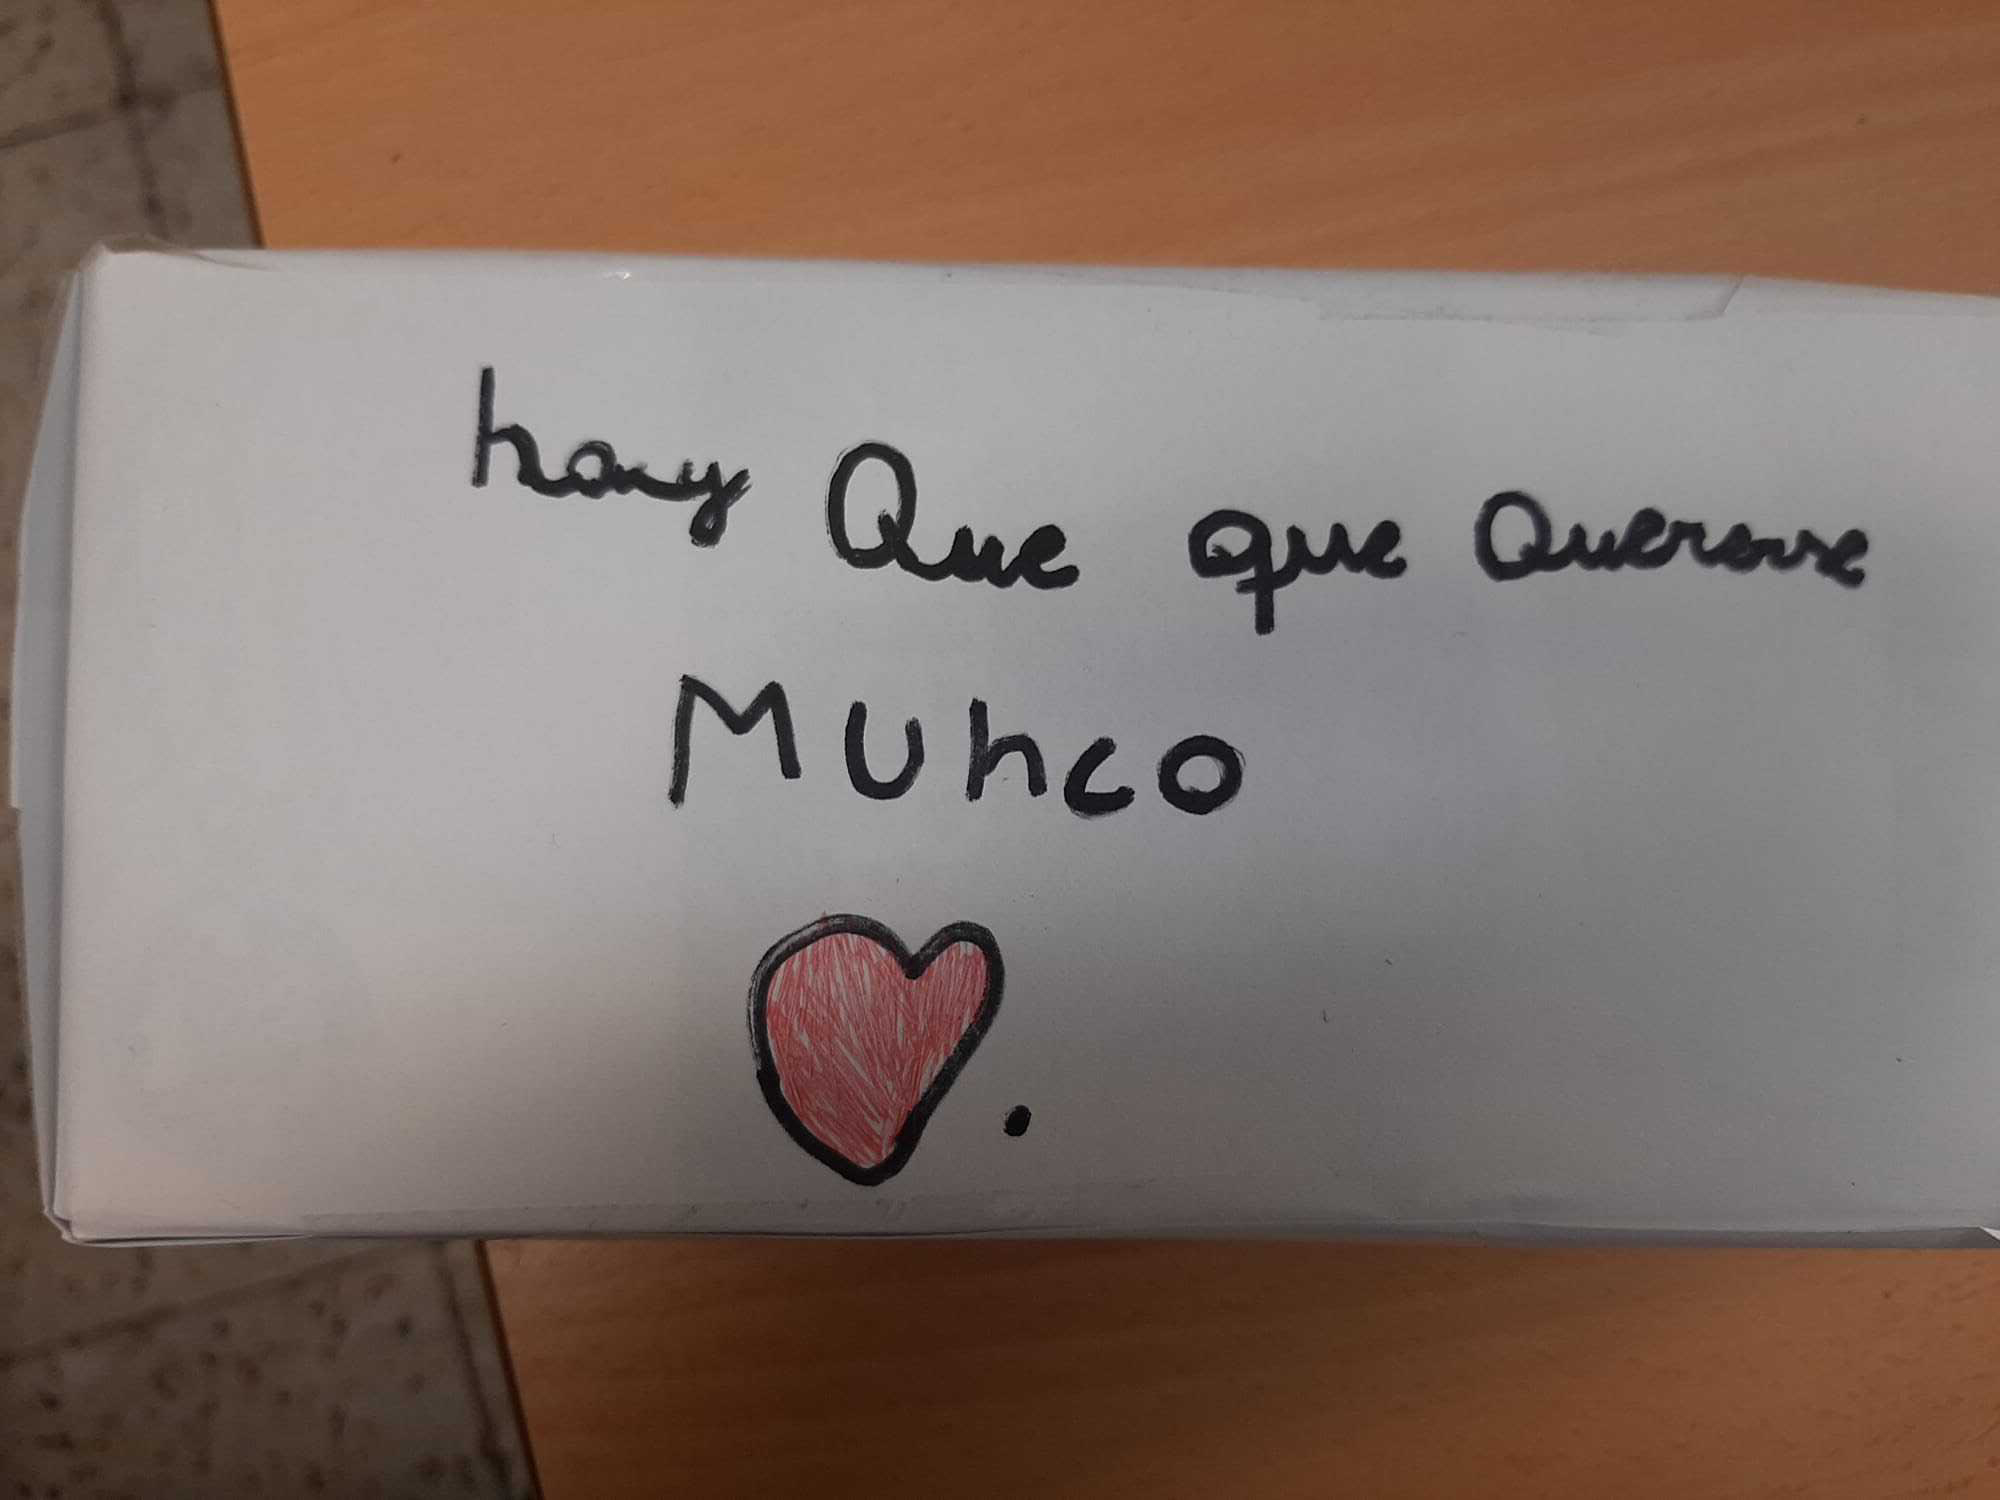 hay Que que Quererse
MUhco